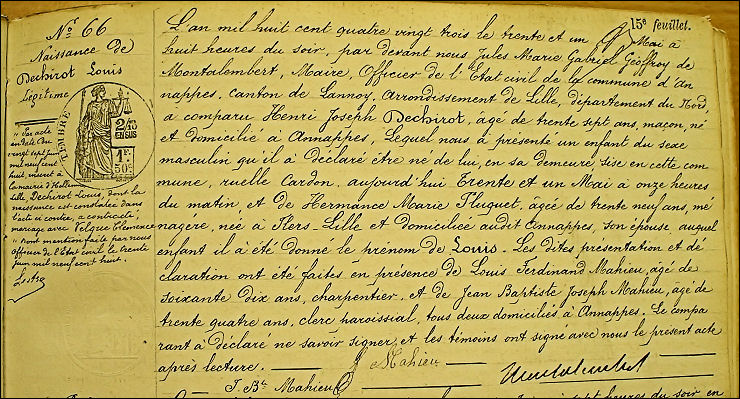 15e feuillet.
No 66
Naissance de
Dechirot Louis
Légitime
TIMBRE
2/10
EN SUS
1F.
50c
Par acte
en date du
vingt sept Juin
mil neuf cent
huit, inscrit à
la mairie d'Halluin
Lille Dechirot Louis, dont la
naissance est constatée dans
l'acte ci contre, a contracté
mariage avec Pelque Clémence
Dont mention faite par nous
Officier de l'Etat civil le trente
Juin mil neuf cent huit.
L'an mil huit cent quatre vingt trois le trente et un Mai à
huit heures du soir, par devant nous Jules Marie Gabriel Geoffroy de
Montalembert, Maire, Officier de l'Etat civil de la commune d'An
nappes, canton de Lannoy, Arrondissement de Lille, département du Nord,
a comparu Henri Joseph Dechirot, âgé de trente sept ans, maçon, né
et domicilié à Annappes, Lequel nous a présenté un enfant du sexe
masculin qu'il a déclaré être né de lui, en sa demeure sise en cette com
mune, ruelle Cardon, aujourd'hui Trente et un Mai à onze heures
du matin et de Hermance Marie Pluquet, âgée de trente neuf ans, mé
nagère, née à Flers-Lille et domiciliée audit Annappes, son épouse, auquel
enfant il a été donné le prénom de Louis. Les dites présentation et dé
claration ont été faites en présence de Louis Ferdinand Mahieu, âgé de
Soixante dix ans, charpentier, et de Jean Baptiste Joseph Mahieu, âgé de
trente quatre ans, clerc paroissial, tous deux domiciliés à Annappes. Le compa
rant a déclaré ne savoir signer, et les témoins ont signé avec nous le présent acte
après lecture.
Mahieu
Montalembert
J. Bte Mahieu